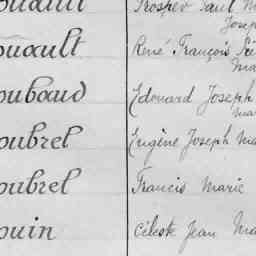 ouault Prosper Paul M
Joseph
ouault René François
Ma
oubaud Edouard Joseph
Mar
oubrel Eugène Joseph Ma
oubrel Francis Marie
ouin Céleste Jean Ma